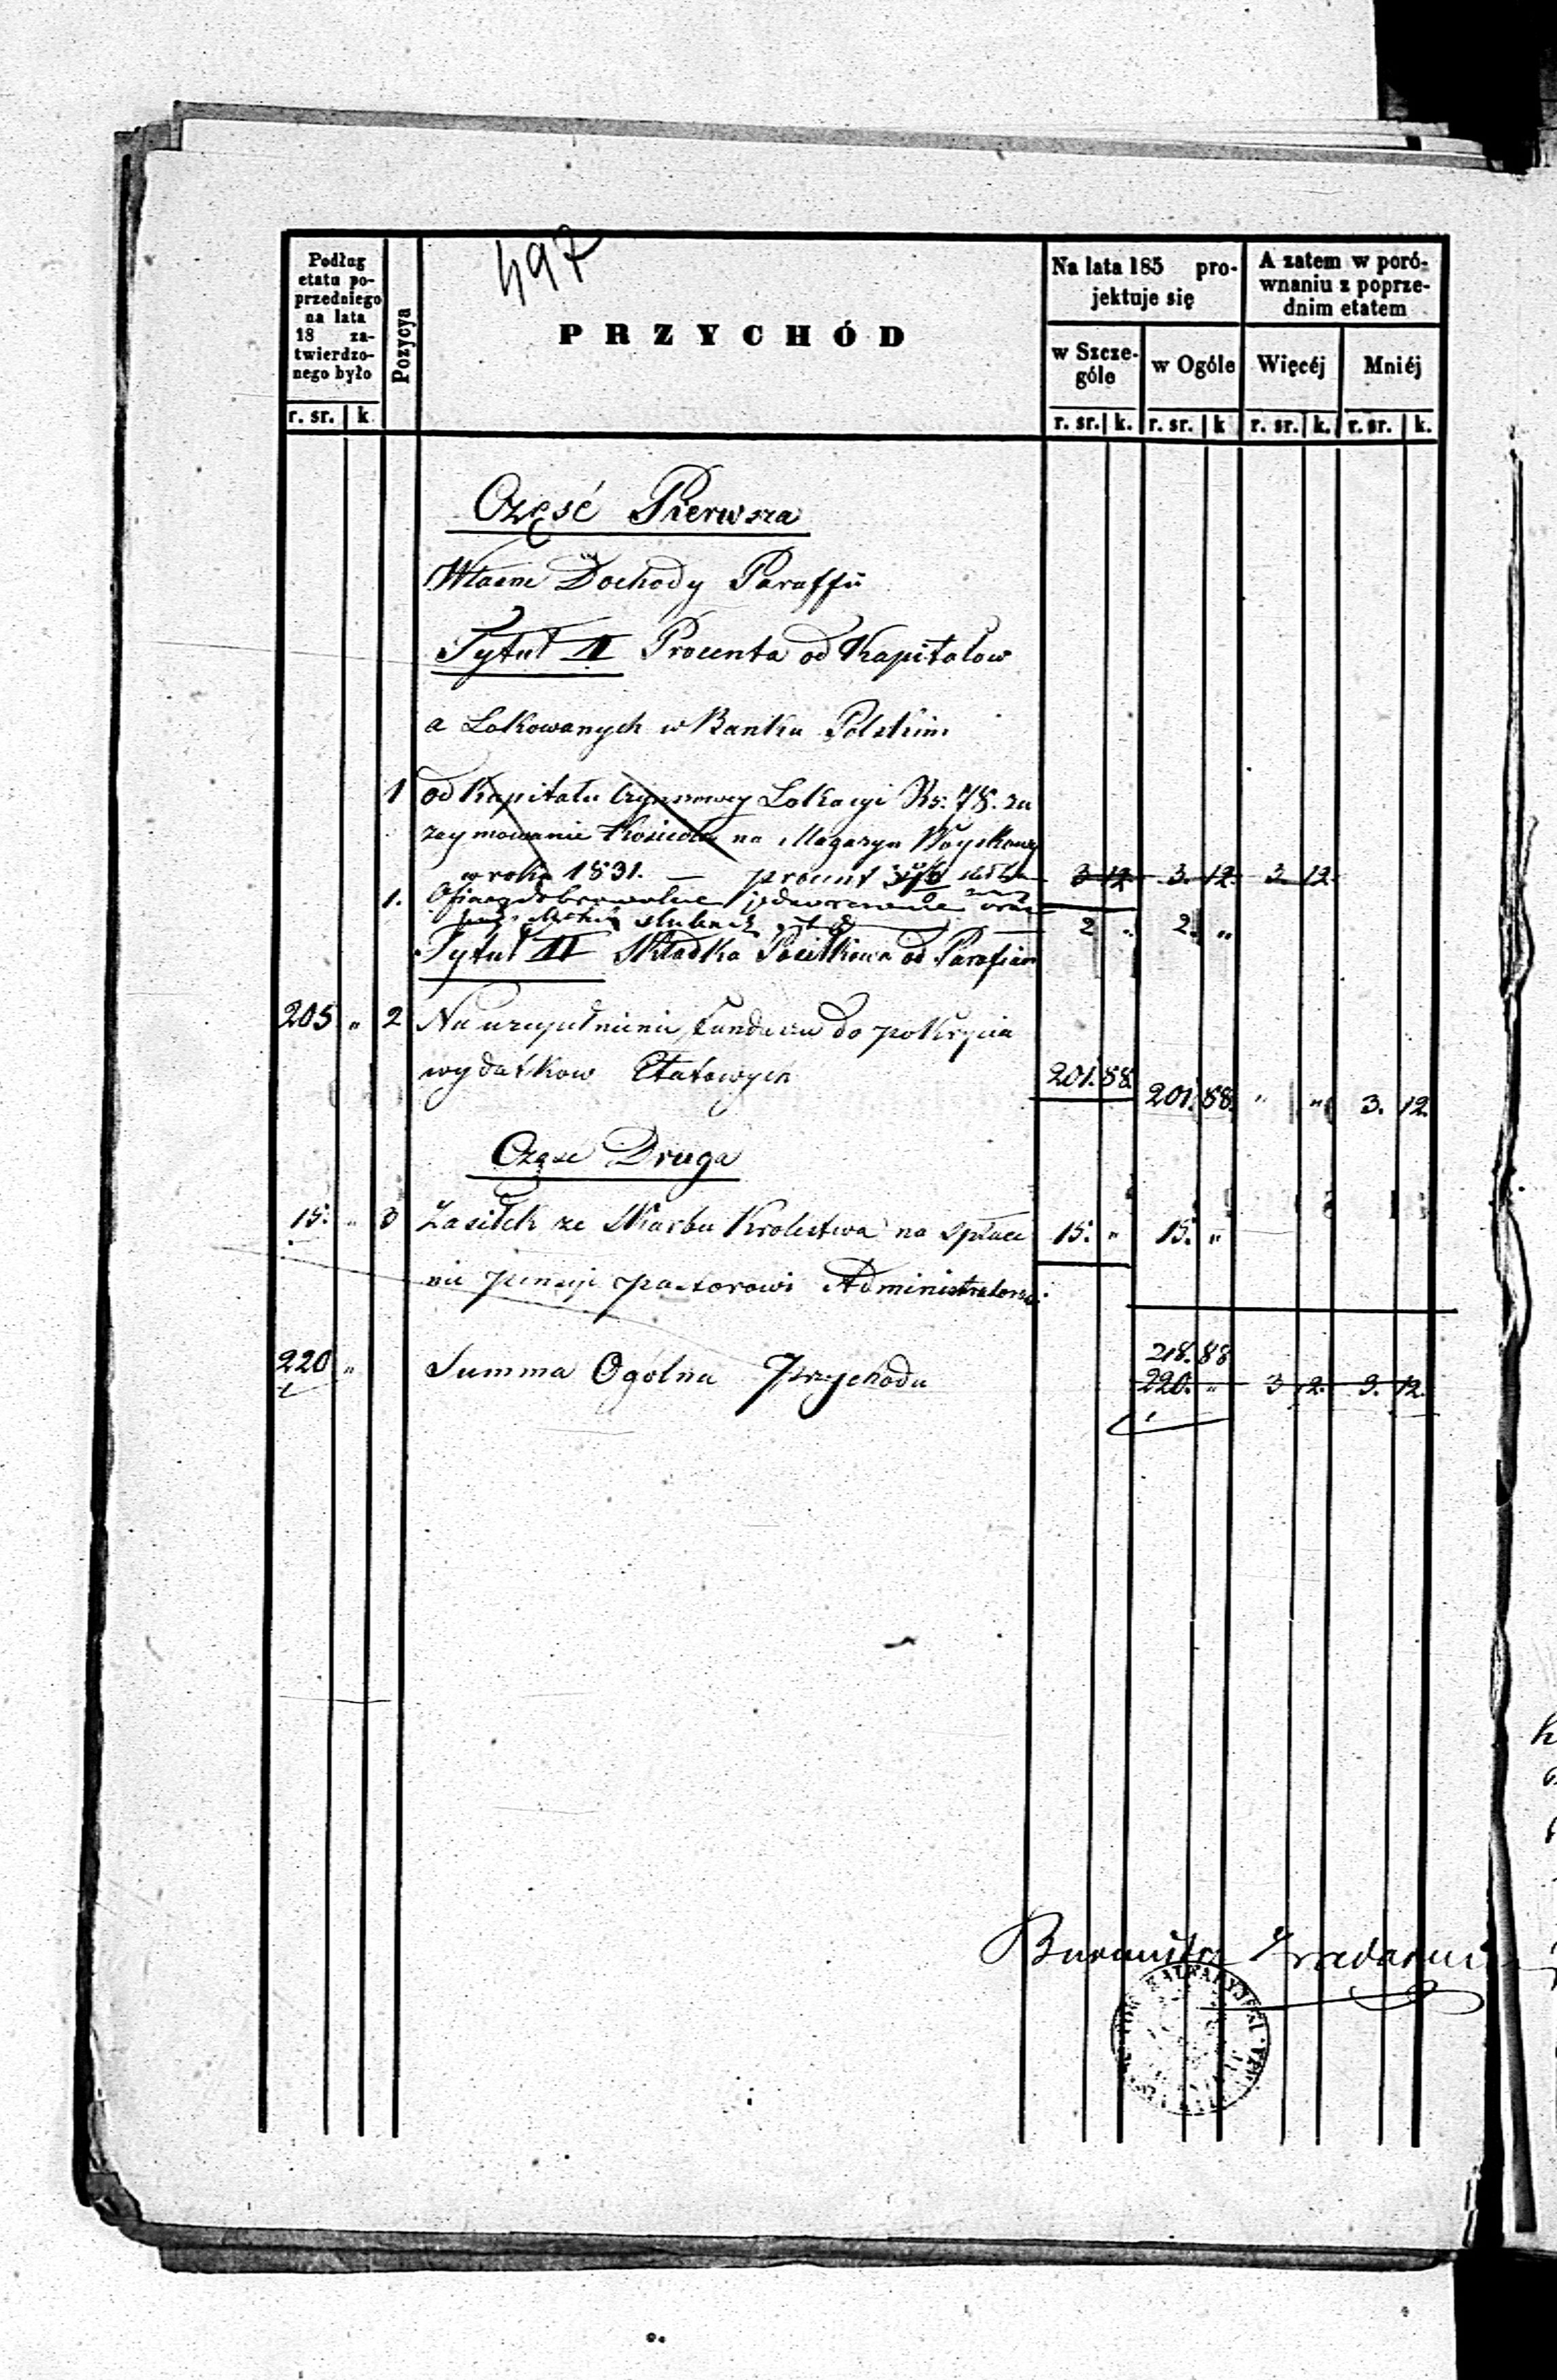 497
Podług etatu poprzedniego na lata 18 zatwierdzonego było
Pozycya
PRZYCHÓD
Na lata 185 projektuje się
A zatem w porównaniu z poprzednim etatem
w Szczególe
w Ogóle
Więcéj
Mniéj
r. sr. k. r. sr. k. r. sr. k r. sr. k. r. sr. k.
Część Pierwsza
Własne Dochody Paraffii
Tytuł II Procenta od Kapitałow
a Lokowanych w Banku Polskim
1 od Kapitału Lokacyi Rs. 78. za
zaymowanie Kościoła na Magazyn Woyskowy
w roku 1831. — procent 3 12 3. 12. 3. 12.
1. Ofiary dobrowolne
2 „ 2 „
Tytuł III Składka Posiłkowa od Parafian
205 „ 2 Na uzupełnienie funduszu do pokrycia
wydatkow Etatowych 201. 88. 201. 88. „ „ 3. 12.
Część Druga
15. „ 3 Zasiłek ze Skarbu Krolestwa na spłace 15. „ 15. „
nie pensyi pastorowi Administratorowi
218. 88
220 „ Summa Ogólna Przychodu 220. „ 3 12. 3. 12.